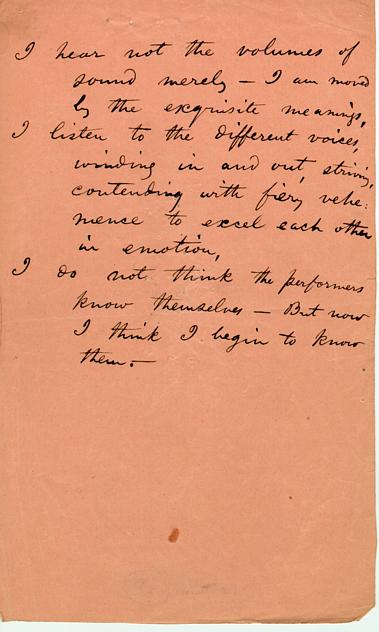 I hear not the volumes of
sound merely — I am moved
by the exquisite meanings,
I listen to the different voices,
winding in and out, striving,
contending with fiery vehe:
mence to excel each other
in emotion,
I do not think the performers
know themselves — But now
I think I begin to know
them.—